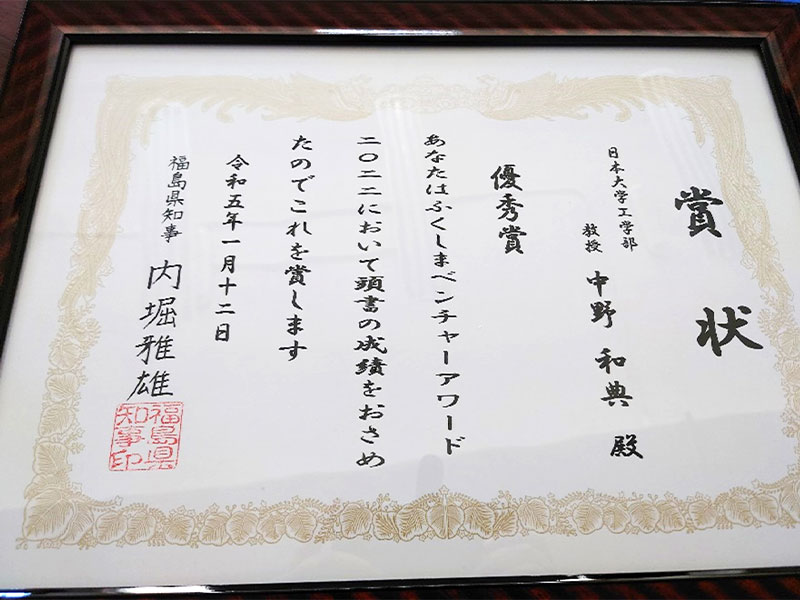 賞状
日本大学工学部
教授 中野和典殿
優秀賞
あなたはふくしまベンチャーアワード
二〇二二において頭書の成績をおさめ
たのでこれを賞します
令和五年一月十二日
福島県知事 内堀雅雄
福島県
知事印